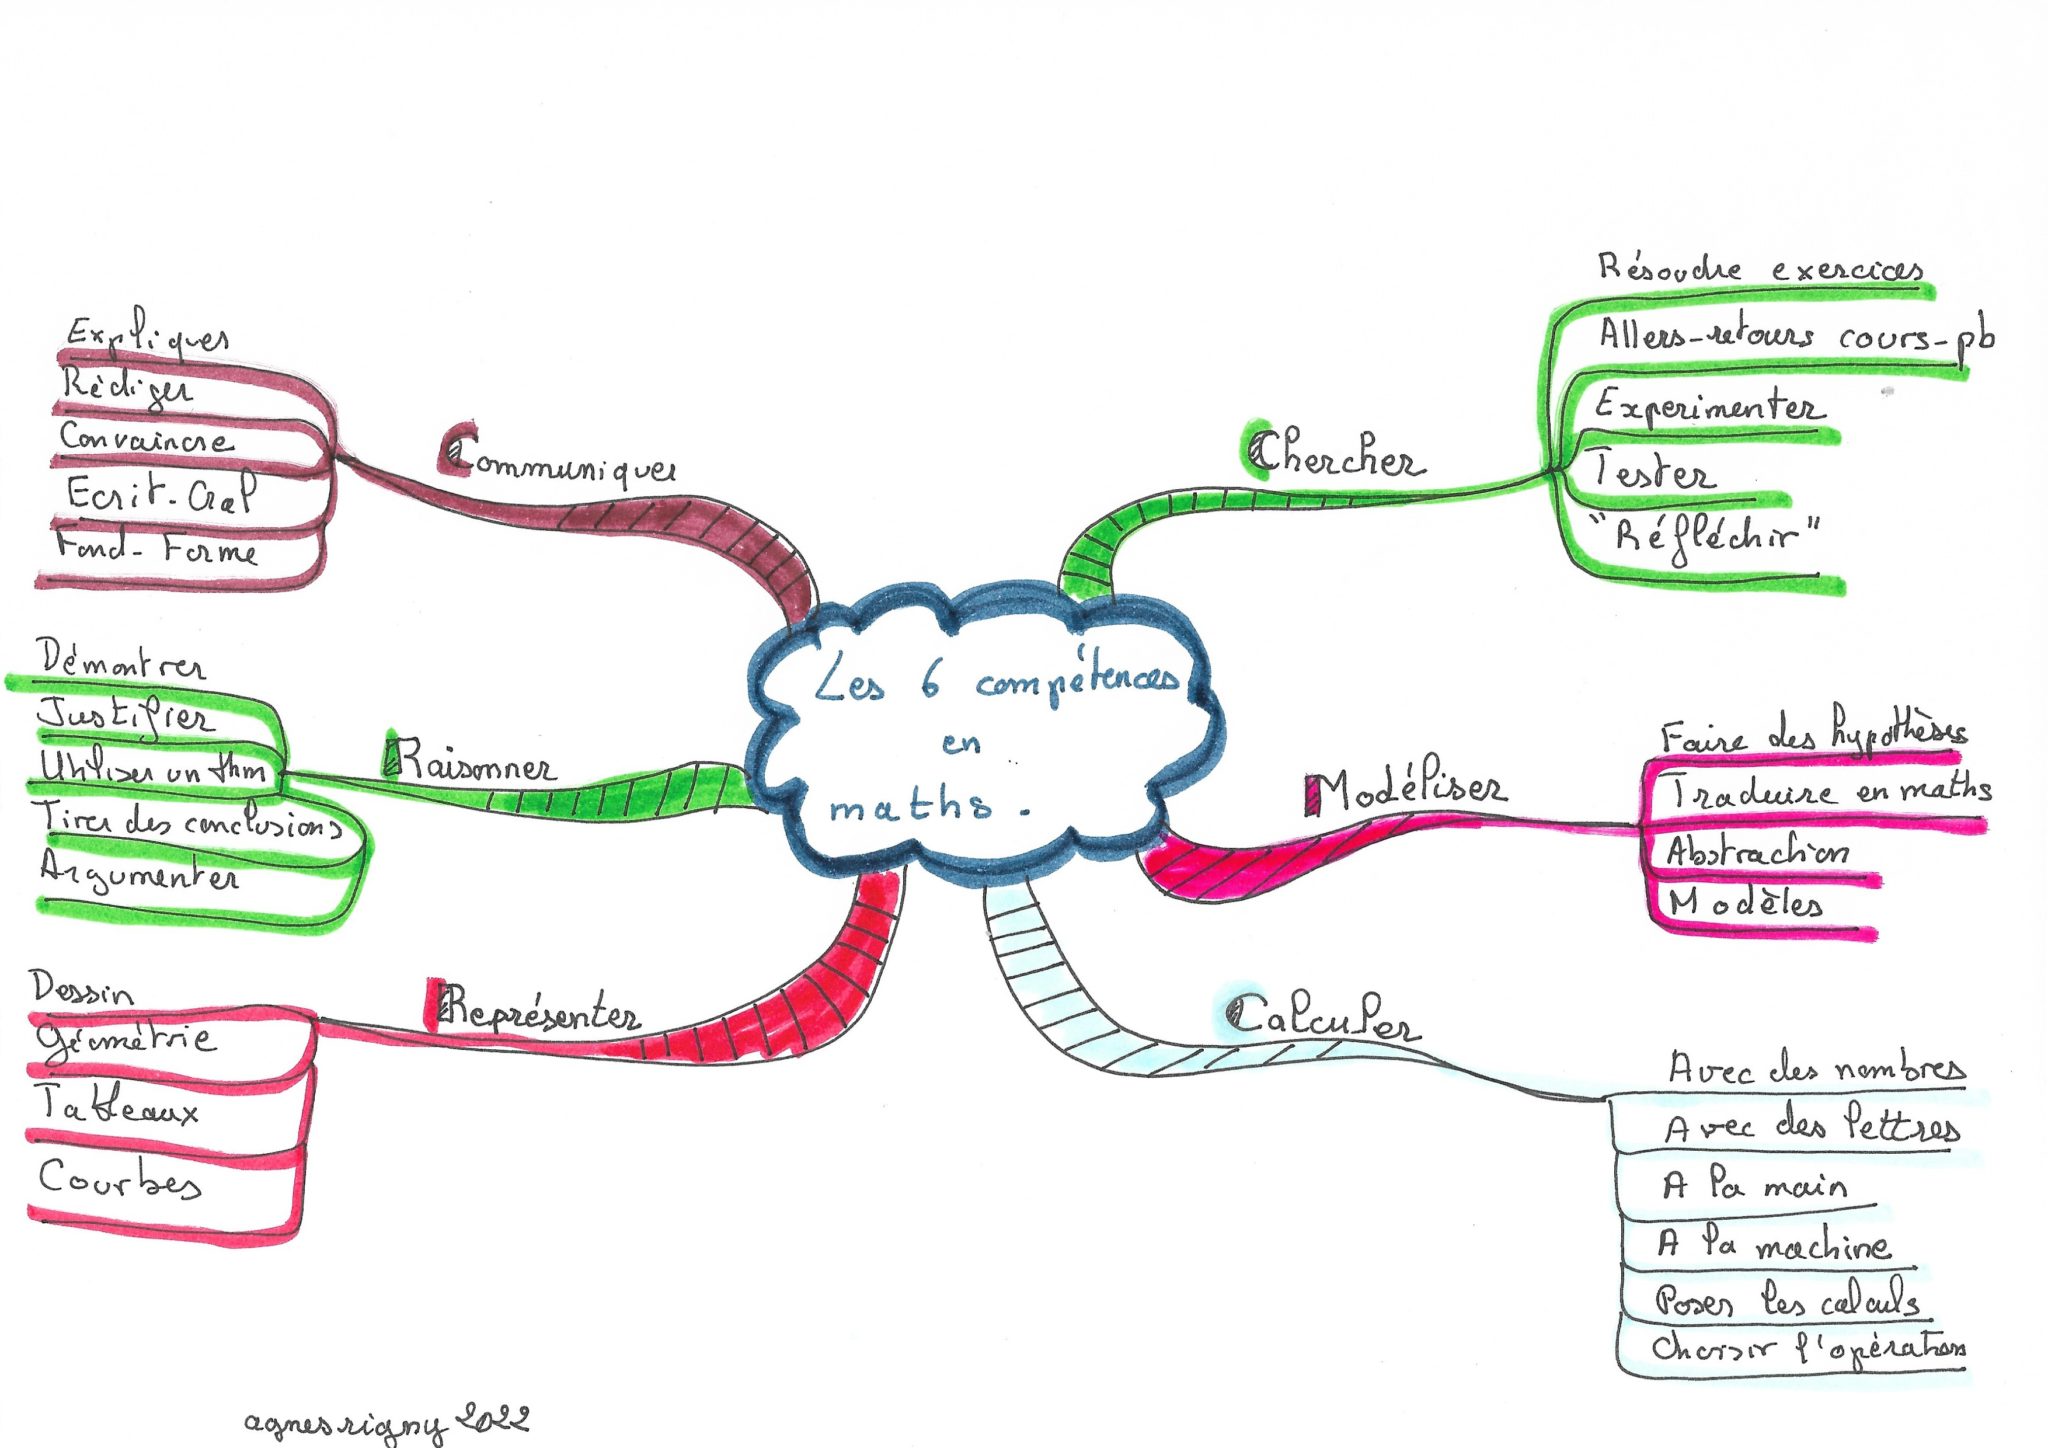 Les 6 compétences
en
maths.
Chercher
Résoudre exercices
Allers-retours cours-pb
Experimenter
Tester
"Réfléchir"
Modéliser
Faire des hypothèses
Traduire en maths
Abstraction
Modèles
Calculer
Avec des nombres
Avec des lettres
A la main
A la machine
Poser les calculs
Choisir l'opération
Représenter
Dessin
Géométrie
Tableaux
Courbes
Raisonner
Démontrer
Justifier
Utiliser un thm
Tirer des conclusions
Argumenter
Communiquer
Expliquer
Rédiger
Convaincre
Ecrit-Oral
Fond-Forme
agnesrigny 2022